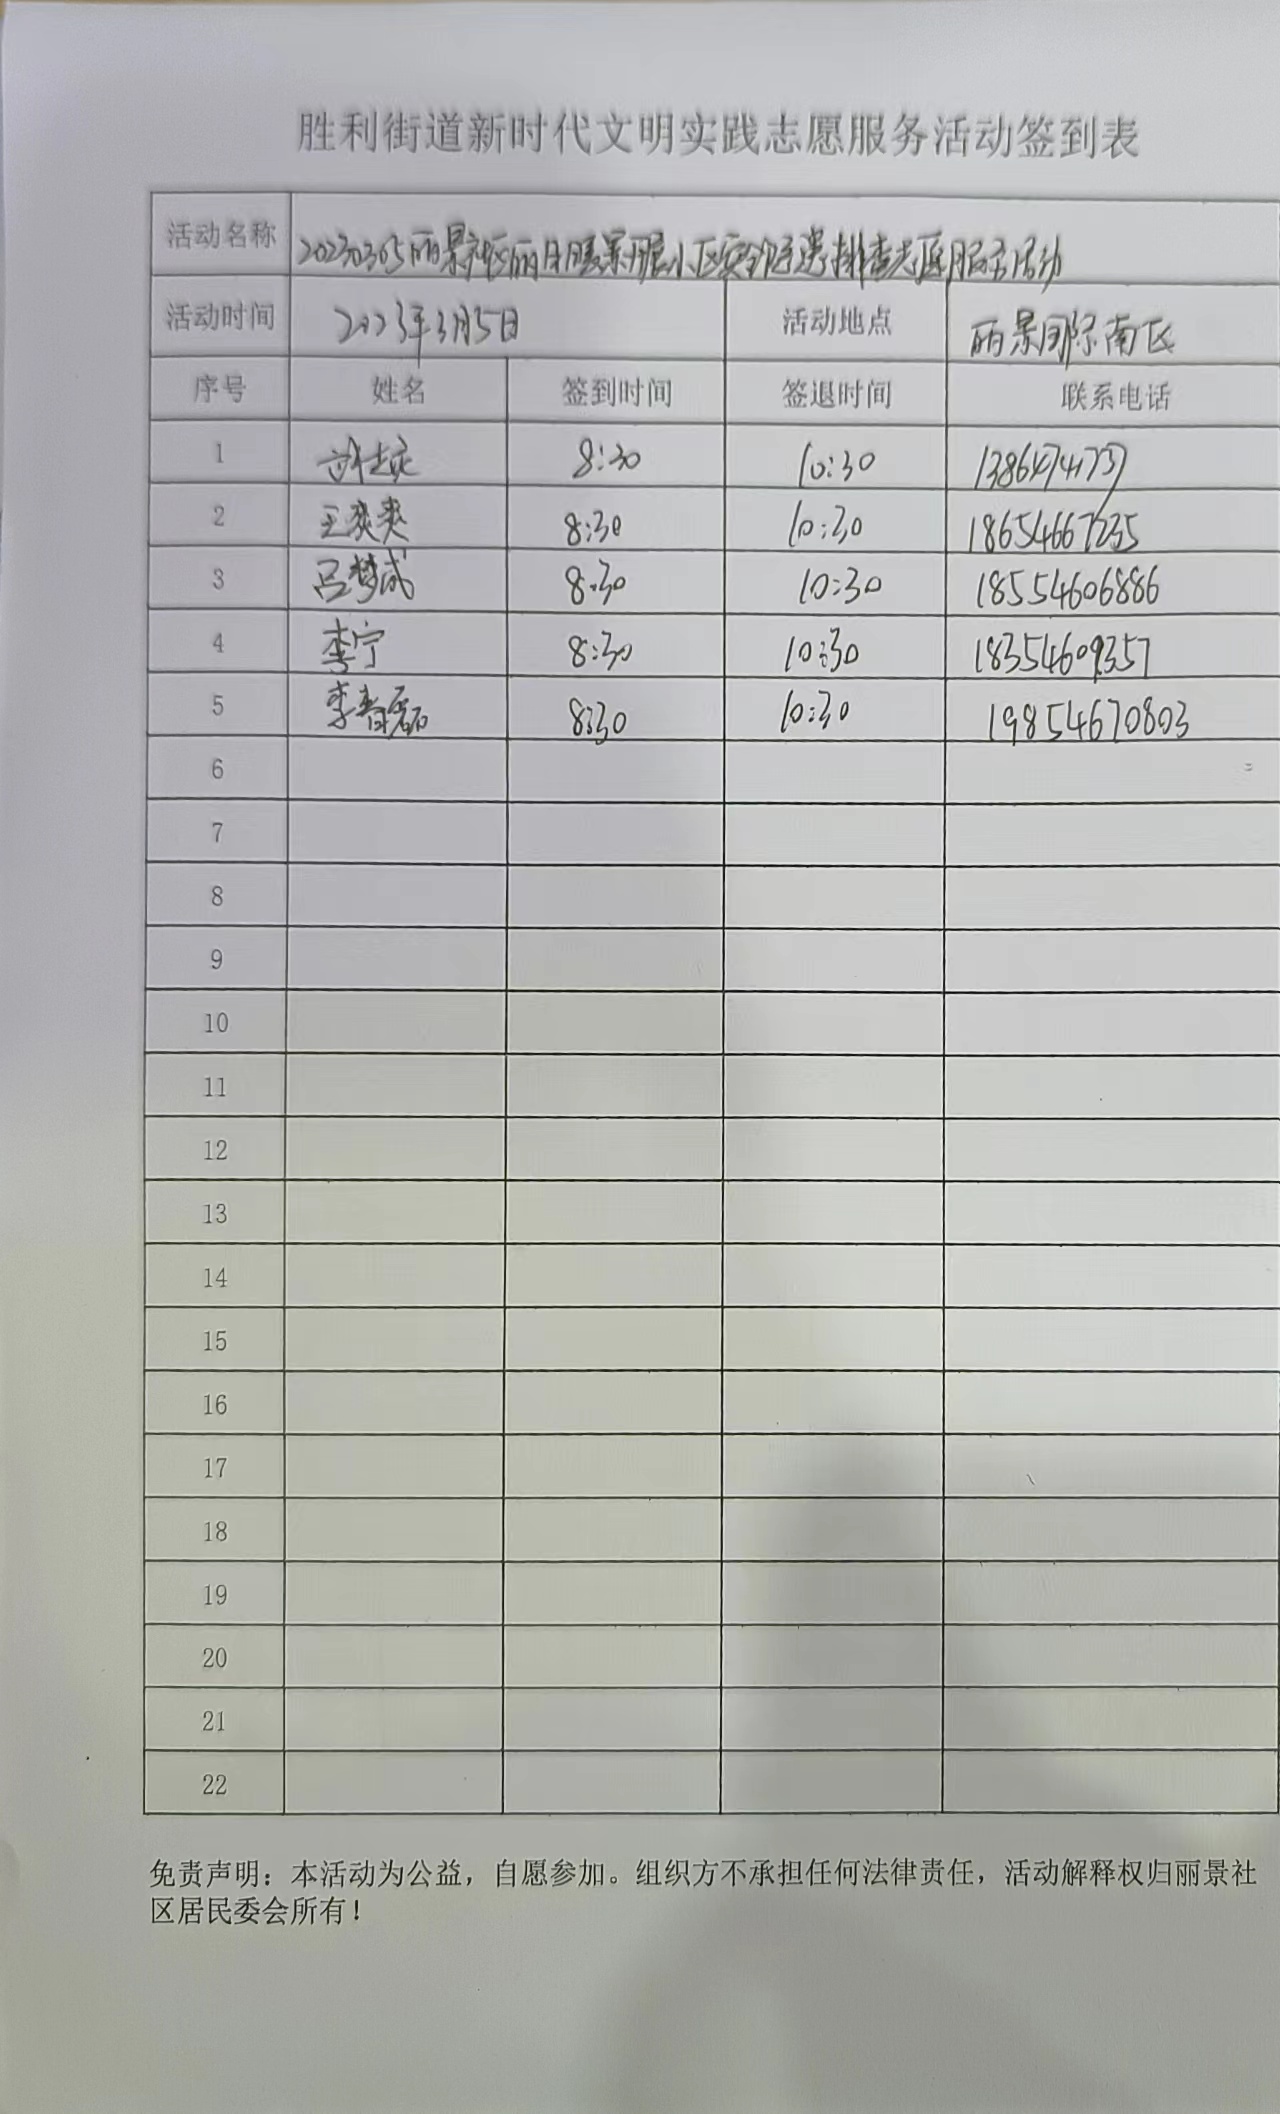 胜利街道新时代文明实践志愿服务活动签到表
活动名称 20230305丽景社区丽日暖景开展小区安全隐患排查志愿服务活动
活动时间 2023年3月5日 活动地点 丽景国际南区
序号 姓名 签到时间 签退时间 联系电话
1 8:30 10:30
2 王爽爽 8:30 10:30 18654667235
3 吕梦成 8:30 10:30 18554606886
4 李宁 8:30 10:30 18354609357
5 李春磊 8:30 10:30 19854670803
6
7
8
9
10
11
12
13
14
15
16
17
18
19
20
21
22
免责声明：本活动为公益，自愿参加。组织方不承担任何法律责任，活动解释权归丽景社
区居民委会所有！